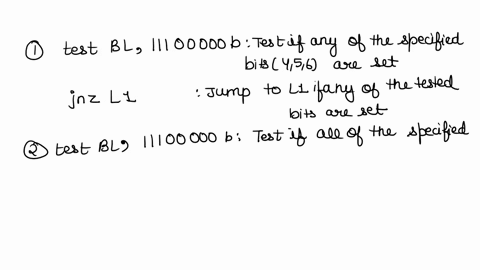 ① test BL, 11100000b : Test if any of the specified
bits (4,5,6) are set
jnz L1 : Jump to L1 if any of the tested
bits are set
② test BL, 11100000 b : Test if all of the specified